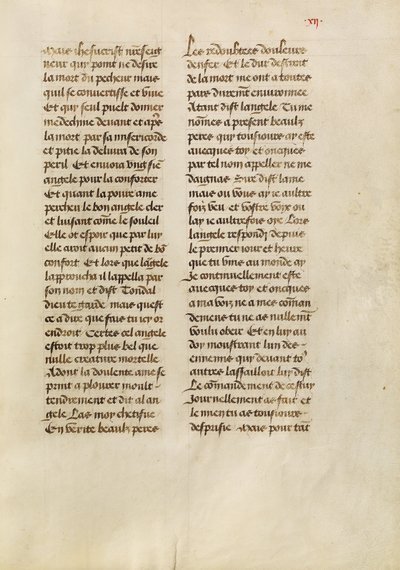 ·xij·
Mais ihesucrist nreseig
neur qui point ne desire
la mort du pecheur mais
quil se conuertisse et viue
Et qui seul puelt donner
medecine deuant et apres
la mort par sa misericorde
et pitie la deliura de son
peril Et enuoia vng sie
angele pour la conforter
Et quant la poure ame
percheu le bon angele cler
et luisant come le souleil
Elle ot espoir que par luy
elle auroit aucun petit de bō
confort Et lors que lāgele
lapproucha il lappella par
son nom et dist Tondal
dieu te garde mais quest
ce a dire que fais tu icy or
endroit Certes cel angele
estoit trop plus bel que
nulle creature mortelle
Adont la doulente ame se
print a plourer moult
tendrement et dit al an
gele Las moy chetifue
En verite beaulz peres
Les redoubtees douleurs
denfer Et le dur destroit
de la mort me ont a toutes
pars duremt enuironnee
Atant dist langele Tu me
nomes a present beaulz
peres qui tousiours ay este
auecques toy et oncques
par tel nom appeller ne me
daignas Sire dist lame
mais ou vous ay ie aultre
fois veu et vostre voix ou
lay ie aultrefois oye Lors
langele respondj depuis
le premier iour et heure
que tu vins au monde ay
Je continuellement este
auecques toy et oncques
a ma voix ne a mes cōman
demens tu ne as nullemt
voulu obeir Et en luy au
doy moustrant lun des
ennemis qui deuant to9
autres lassailloit luy dist
Le cōmandement de cestuy
Journellement as fait et
le mien tu as tousiours
desprisie Mais pour tāt